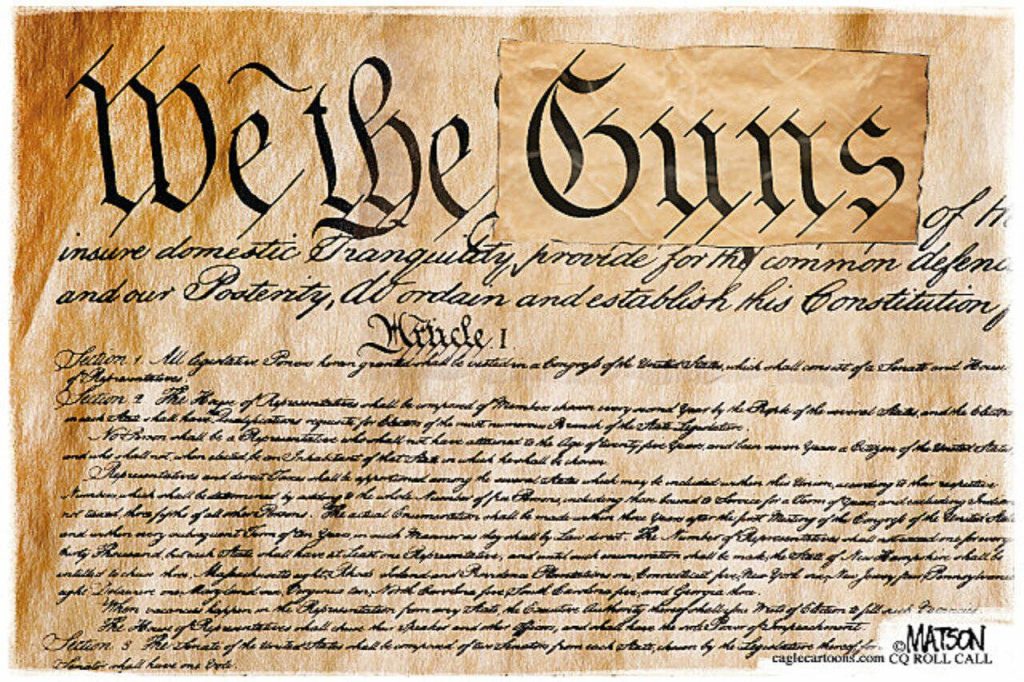 We the Guns
of th
insure domestic Tranquility, provide for the common defenc
and our Posterity, do ordain and establish this Constitution f
Article. I
Section 1. All legislative Powers herein granted shall be vested in a Congress of the United States, which shall consist of a Senate and House
of Representatives.
Section 2. The House of Representatives shall be composed of Members chosen every second Year by the People of the several States, and the Electors
in each State shall have Qualifications requisite for Electors of the most numerous Branch of the State Legislature.
No Person shall be a Representative who shall not have attained to the Age of twenty five Years, and been seven Years a Citizen of the United States,
and who shall not, when elected, be an Inhabitant of that State in which he shall be chosen.
Representatives and direct Taxes shall be apportioned among the several States which may be included within this Union, according to their respective
Numbers, which shall be determined by adding to the whole Number of free Persons, including those bound to Service for a Term of Years, and excluding Indians
not taxed, three fifths of all other Persons. The actual Enumeration shall be made within three Years after the first Meeting of the Congress of the United States
and within every subsequent Term of ten Years, in such Manner as they shall by Law direct. The Number of Representatives shall not exceed one for every
thirty Thousand, but each State shall have at Least one Representative; and until such enumeration shall be made, the State of New Hampshire shall be
entitled to chuse three, Massachusetts eight, Rhode Island and Providence Plantations one, Connecticut five, New York six, New Jersey four, Pennsylvania
eight, Delaware one, Maryland six, Virginia ten, North Carolina five, South Carolina five, and Georgia three.
When vacancies happen in the Representation from any State, the Executive Authority thereof shall issue Writs of Election to fill such Vacancies.
The House of Representatives shall chuse their Speaker and other Officers; and shall have the sole Power of Impeachment.
Section 3. The Senate of the United States shall be composed of two Senators from each State, chosen by the Legislature thereof, for
Senator shall have one Vote.
© MATSON
caglecartoons.com CQ ROLL CALL